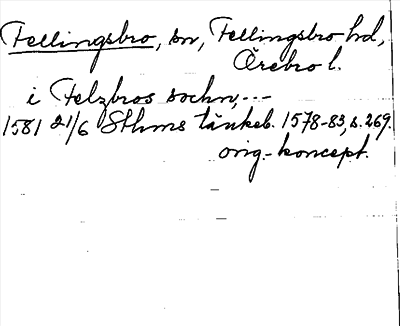 Fellingsbro, sn, Fellingsbro hd,
Örebro l.
i Felzbros sochn, ---
1581 21/6 Sthms tänkeb. 1578-83, s. 269.
orig.-koncept.